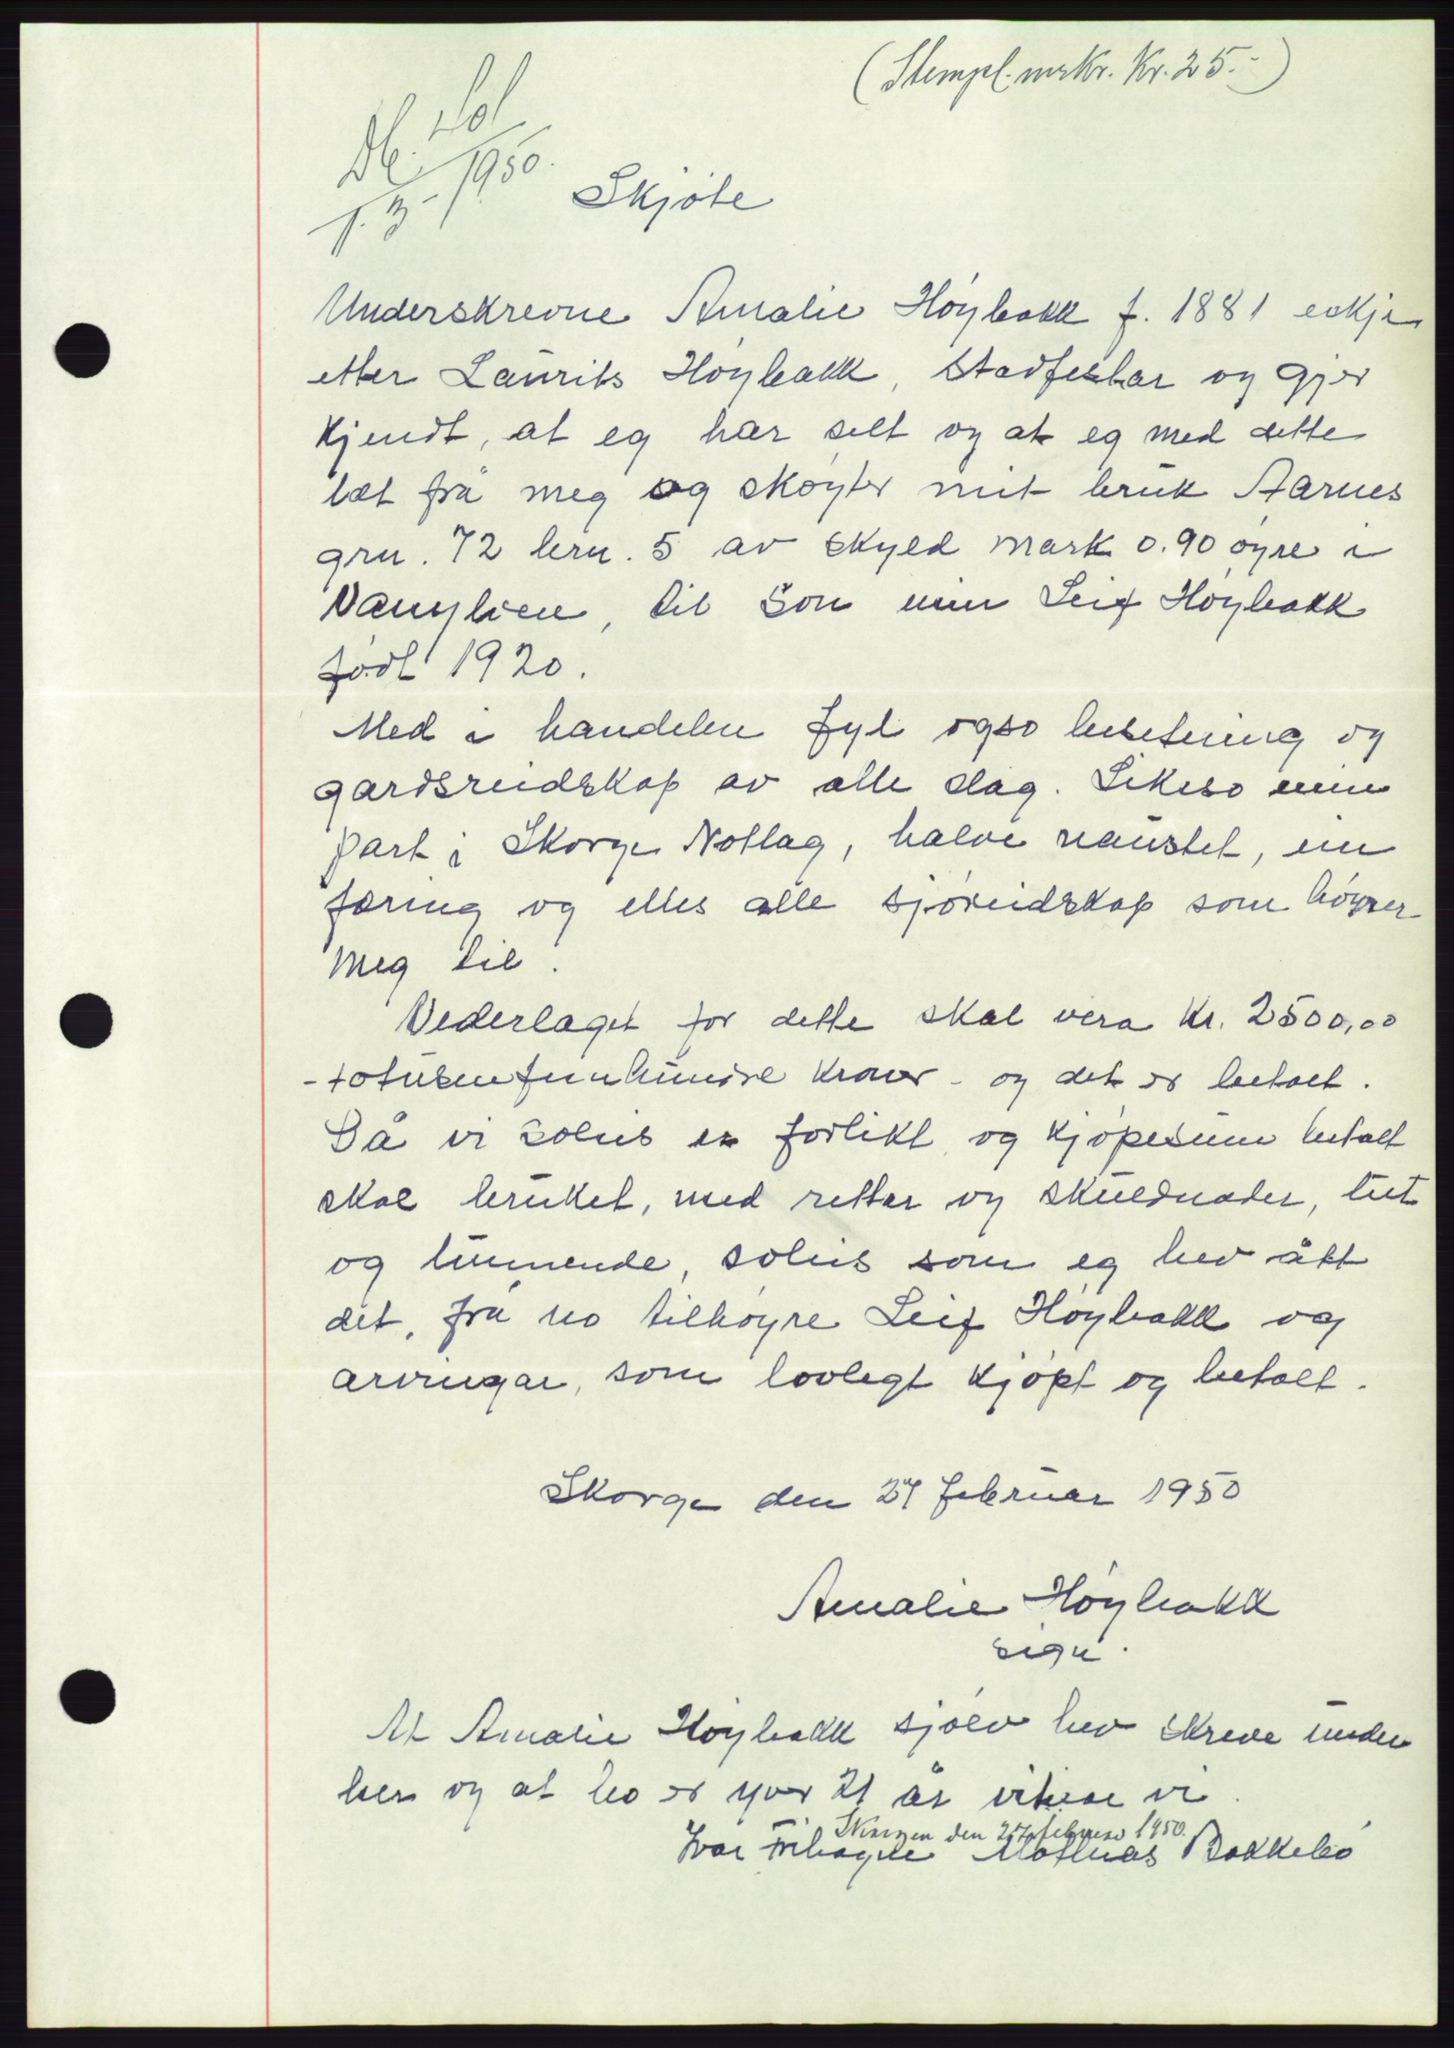 (Stempl. mrkr. Kr. 25.-)
Db. 401
1.3-1950.
Skjöte
Underskrevne Amalie Höybakk f. 1881 eckje
etter Laurits Höybakk, Stadfestar og gjer
Kjendt, at eg har selt og at eg med dette
læt frå meg og sköyter mit bruk Aarnes
grn. 72 brn. 5 av skyld mark 0.90 öyre i
Vanylven, til son min Leif Höybakk
födt 1920.
Med i handelen fyl ogso besetning og
gardsreidskap av alle slag. Likeso min
part i Skorge Notlag, halve naustet, ein
færing og elles alle sjöreidskap som höyrer
meg til.
Vederlaget for dette skal vera Kr. 2500,00
- totusenfemhundre kroner - og det er betalt.
Då vi soleis er forlikt og kjöpesum betalt
skal bruket, med rettar og skuldnader, lut
og lunnende, soleis som eg hev átt
det, frå no tilhöyre Leif Höybakk og
arvingar, som lovlegt kjöpt og betalt.
Skorge den 27 februar 1950
Amalie Höybakk
sign.
At Amalie Höybakk sjölv hev skreve under
her og at ho er yver 21 år vitnar vi
den 27 februar 1950.
Ivar Mathias Bakkebö